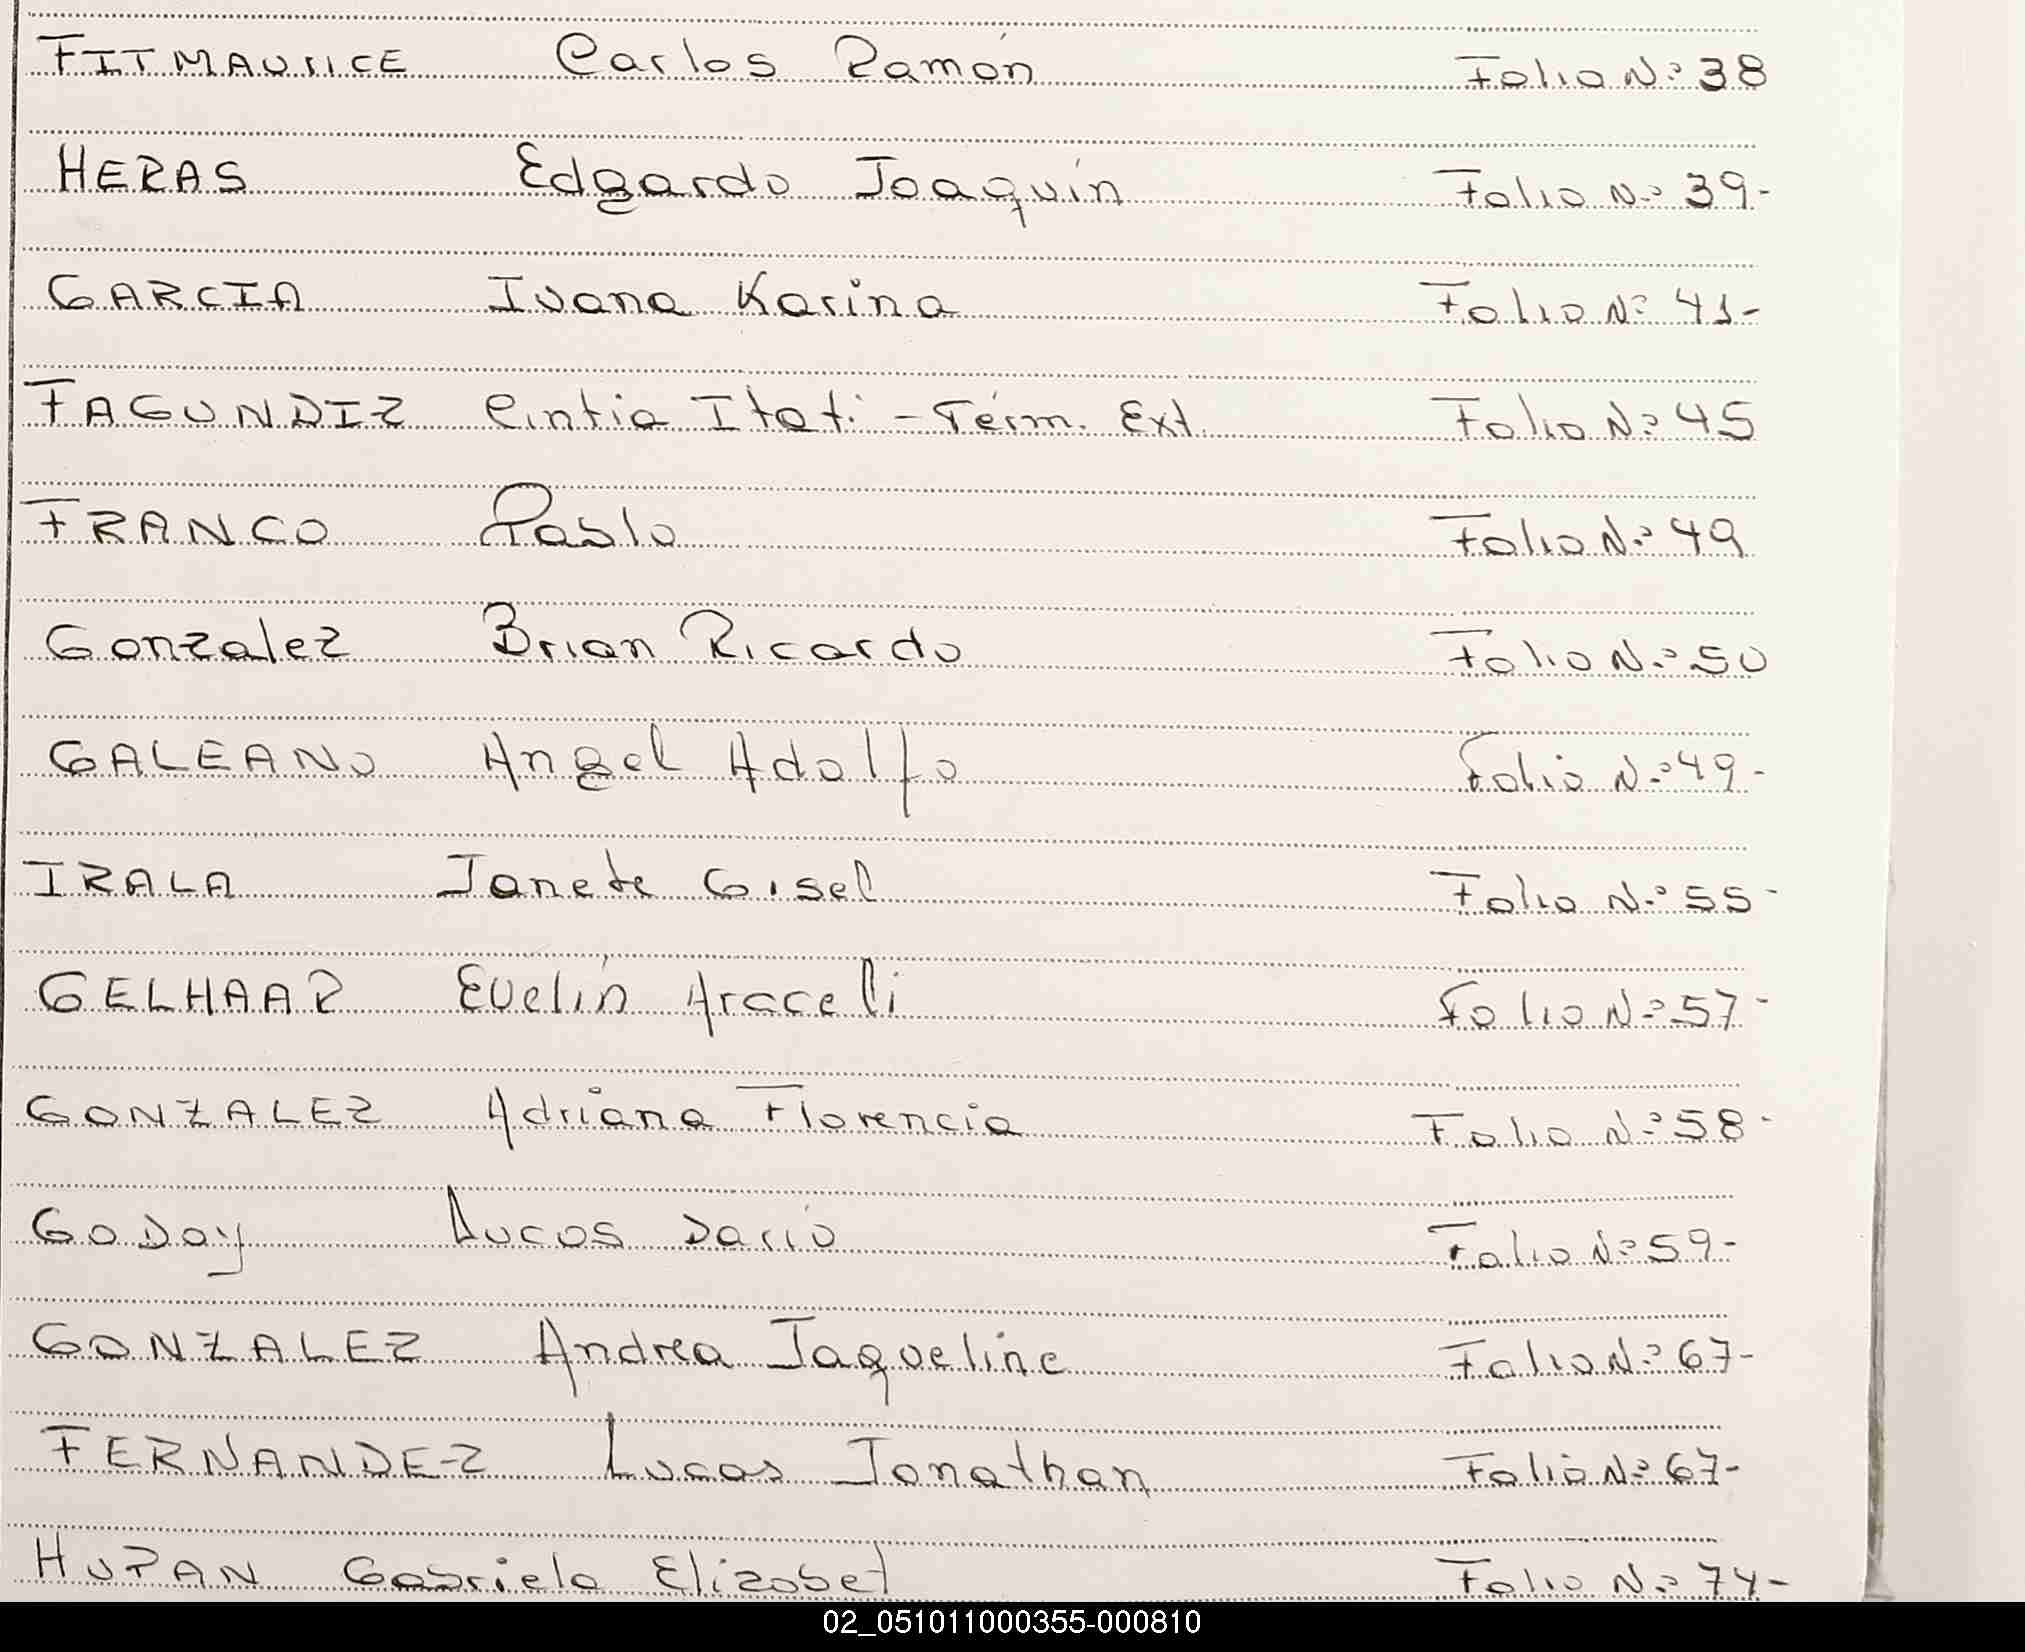 FITMAURICE Carlos Ramón Folio N.º 38
HERAS Edgardo Joaquín Folio N.º 39-
GARCIA Ivana Karina Folio Nº 41-
FAGUNDIZ Cintia Itati - Térm. Ext. Folio N.º 45
FRANCO Pablo Folio N.º 49
Gonzalez Brian Ricardo Folio N.º 50
GALEANO Angel Adolfo Folio N.º 49-
IRALA Janete Gisel Folio N.º 55-
GELHAAR Evelin Araceli Folio N.º 57-
GONZALEZ Adriana Florencia Folio N.º 58-
GODOY Lucas Darío Folio N.º 59-
GONZALEZ Andrea Jaqueline Folio N.º 67-
FERNANDEZ Lucas Jonathan Folio N.º 67-
HUPAN Gabriela Elizabet Folio N.º 74-
02_051011000355-000810